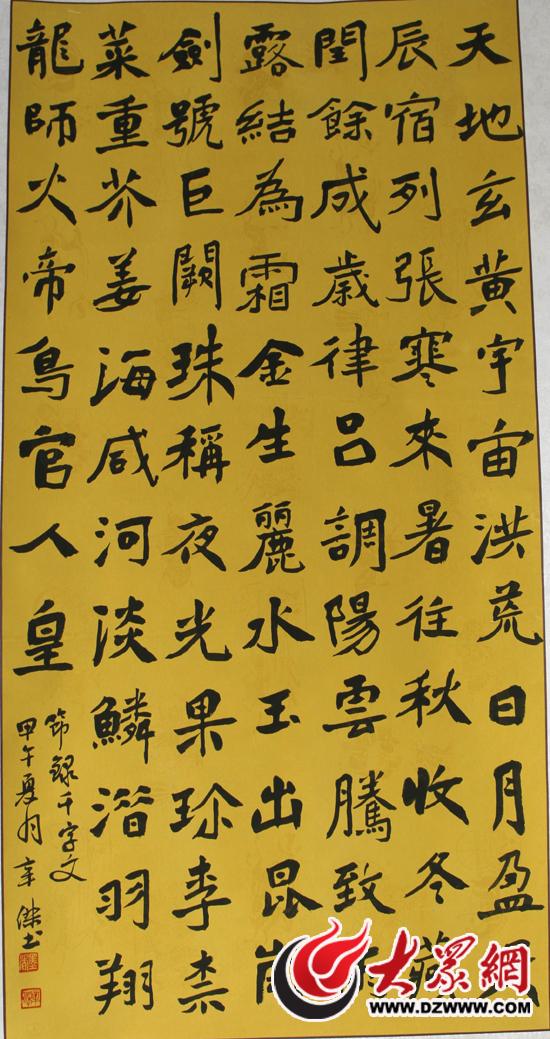 天地玄黃宇宙洪荒日月盈
辰宿列張寒來暑往秋收冬藏
閏餘成歲律呂調陽雲騰致
露結為霜金生麗水玉出昆崗
劍號巨闕珠稱夜光果珍李柰
菜重芥姜海咸河淡鱗潛羽翔
龍師火帝鳥官人皇
節錄千字文
甲午夏月辛傑书
大眾網
WWW.DZWWW.COM